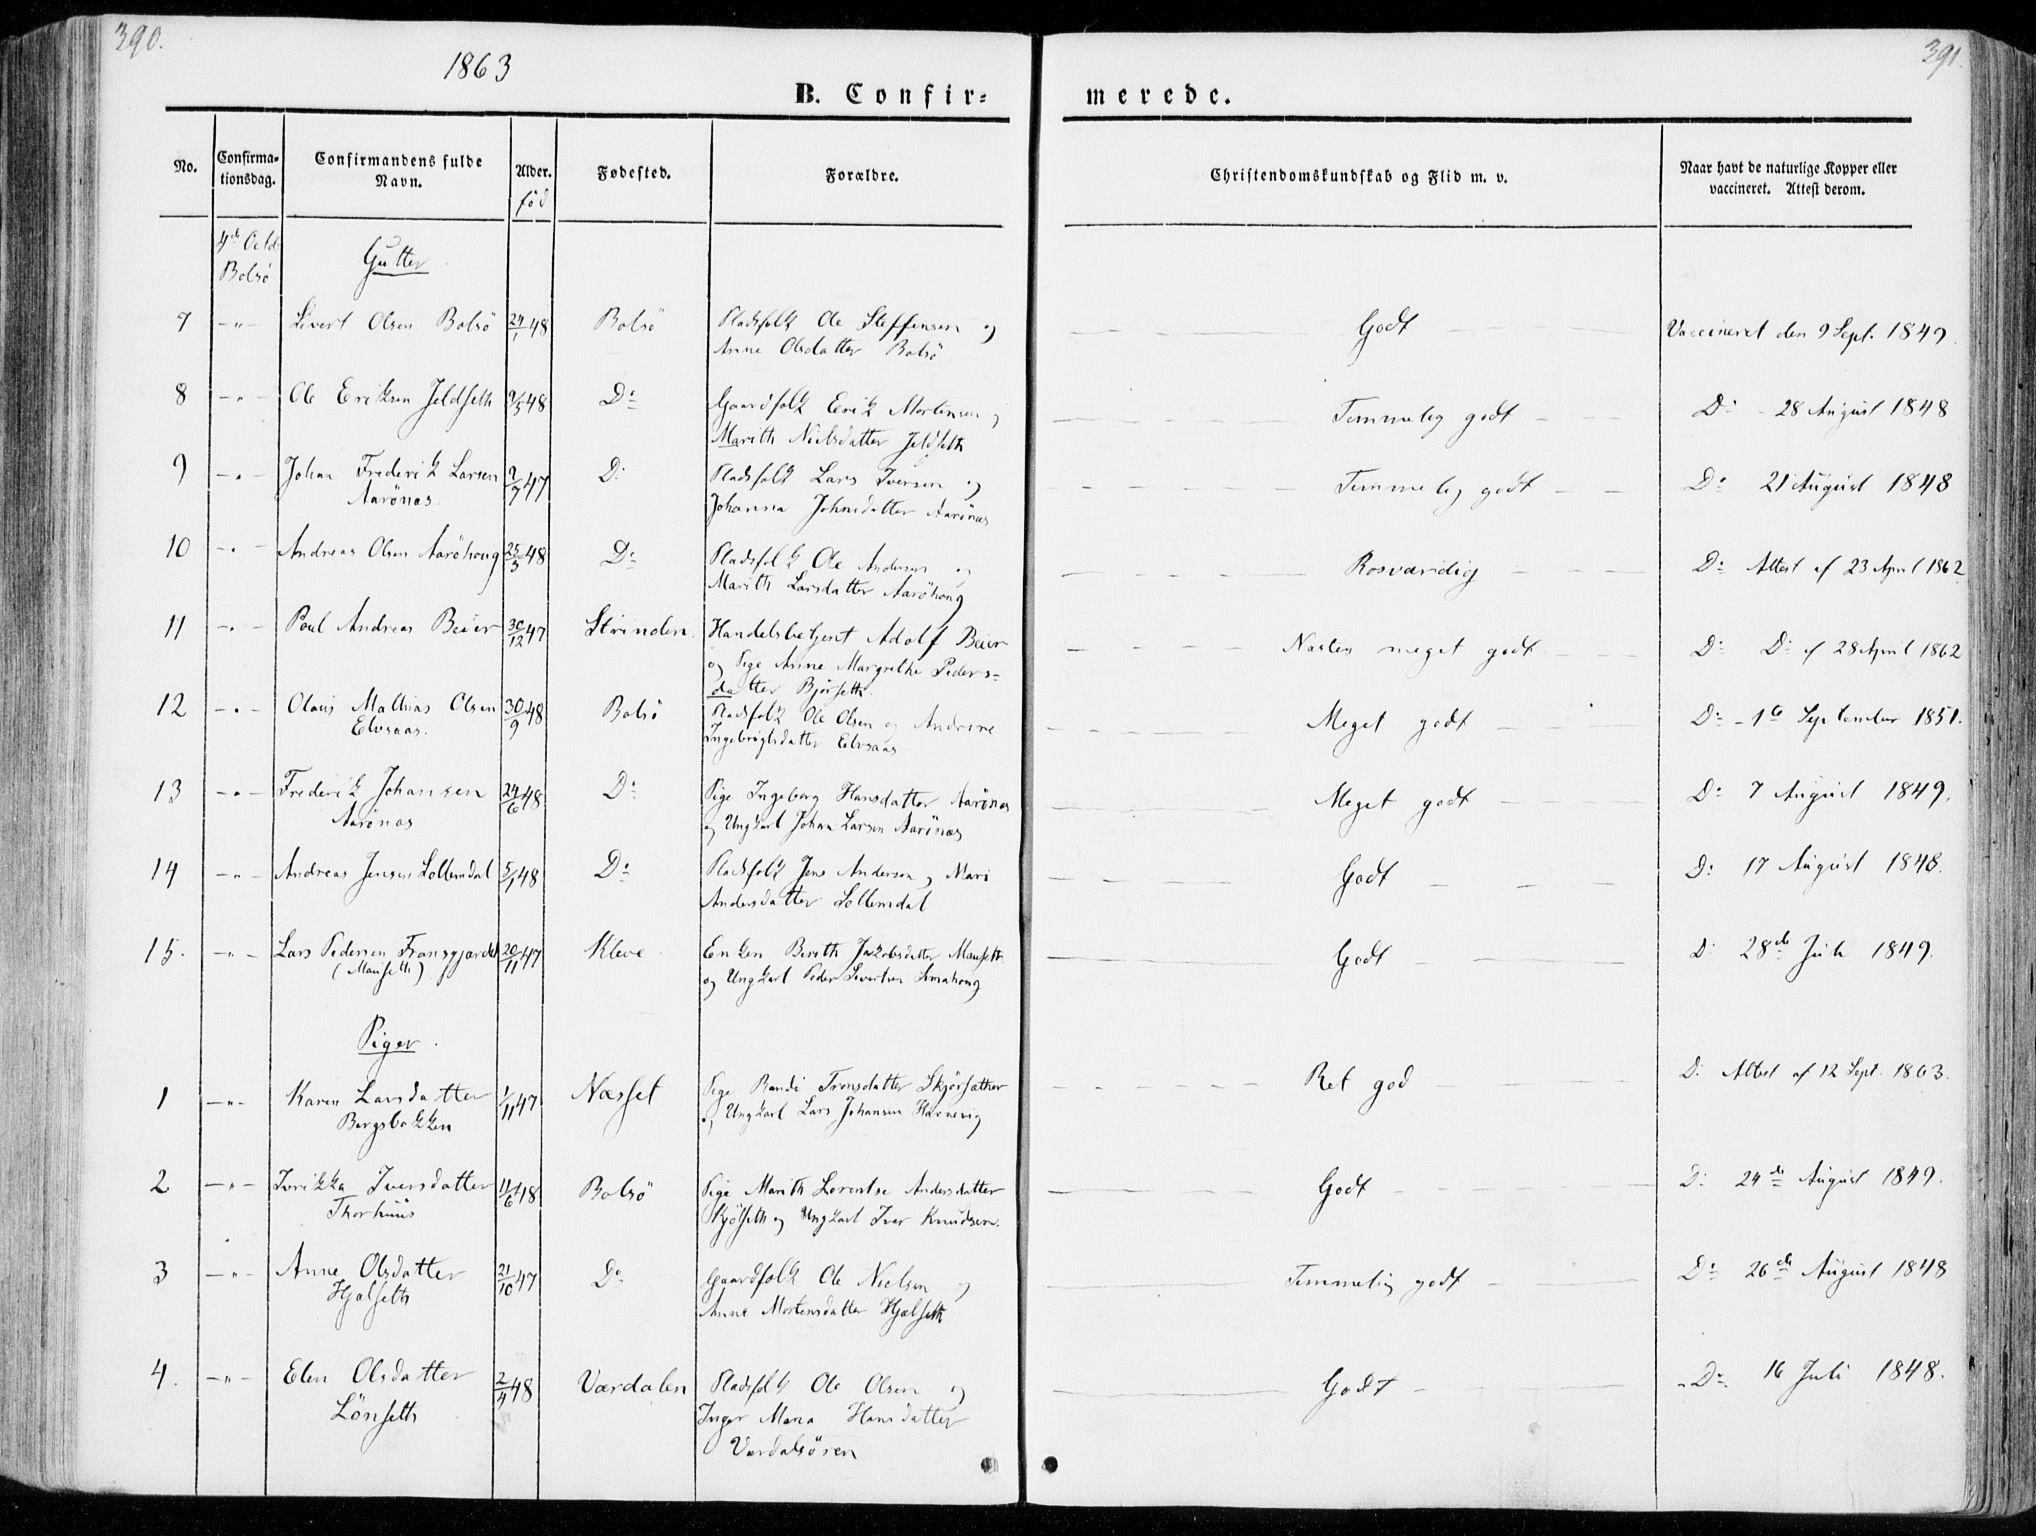 390.
1863
B. Confir=
No.
Confirma=
tionsdag.
Confirmandens fulde
Navn.
Alder.
fød
Fødested.
Forældre.
4de Octbr
Bolsø
Gutter
7 -"- Sivert Olsen Bolsø 24/1 48 Bolsö Pladsfolk Ole Steffensen og
Anne Olsdatter Bolsö
8 -"- Ole Eriksen Jeldseth 9/5 48 Do Gaardfolk Erik Mortensen og
Marith Nielsdatter Jeldseth
9 -"- Johan Frederik Larsen 9/7 47 Do Pladsfolk Lars Iversen og
Aarönæs. Johanna Johnsdatter Aarönæs
10 -"- Andreas Olsen Aaröhoug 25/5 48 Do Pladsfolk Ole Andersen og
Marith Larsdatter Aaröhoug
11 -"- Poul Andreas Beier 30/12 47 Strinden. Handelsbetjent Adolf Beier
og Pige Anne Margrethe Peders=
datter Bjørseth.
12 -"- Olaus Mathias Olsen 30/9 48 Bolsö Pladsfolk Ole Olsen og Andrine
Elvsaas. Ingebrigtsdatter Elvsaas
13 -"- Frederik Johansen 24/6 48 Do Pige Ingeborg Hansdatter Aarönæs
Aarönæs og Ungkarl Johan Larsen Aarönæs
14 -"- Andreas Jensen Sollemdal 5/1 48 Do Pladsfolk Jens Andersen og Mari
Andersdatter Sollemdal
15. -"- Lars Pedersen Fransgjærdet 20/11 47 Kleve Enken Berith Jakobsdatter Mauseth
(Mauseth) og Ungkarl Peder Sivertsen
Piger.
1 -"- Karen Larsdatter 1/11 47 Næsset Pige Randi Tronsdatter Skjörsæther
Bergsbakken og Ungkarl Lars Johansen Havnevig
2 -"- Iverikka Iversdatter 11/6 48 Bolsö Pige Marith Lorentse Andersdatter
Thorhuus Kjölseth og Ungkarl Iver Knudsen.
3 -"- Anne Olsdatter 21/10 47 Do Gaardfolk Ole Nielsen og
Hjelseth Anne Mortensdatter Hjelseth
4. -"- Elen Olsdatter 2/4 48 Værdalen Pladsfolk Ole Olsen og
Lönseth Inger Maria Hansdatter
Værdalsören
391.
merede.
Christendomskundskab og Flid m. v.
Naar havt de naturlige Kopper eller
vaccineret. Attest derom.
Godt Vaccineret den 9 Sept. 1849.
Temmelig godt Do 28 August 1848
Temmelig godt Do 21 August 1848
Rosværdig Do Attest af 23 April 1862
Næsten meget godt Do Do af 28 April 1862
Meget godt Do 1te September 1851.
Meget godt Do 7 August 1849.
Godt Do 17 August 1848.
Godt Do 28de Juli 1849.
Ret god Do Attest af 12 Sept. 1863.
Godt Do 24de August 1849.
Temmelig godt Do 26de August 1848
Godt Do 16 Juli 1848.